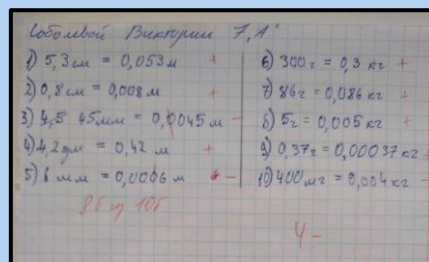 Соболевой Виктории 7 "А"
1) 5,3 см = 0,053 м +
2) 0,8 см = 0,008 м +
3) 4,5 45мм = 0,0045 м −
4) 4,2 дм = 0,42 м +
5) 6 мм = 0,0006 м + −
8б из 10б
6) 300г = 0,3 кг +
7) 86г = 0,086 кг +
8) 5г = 0,005 кг +
9) 0,37г = 0,00037 кг +
10) 400мг = 0,004 кг −
4 −